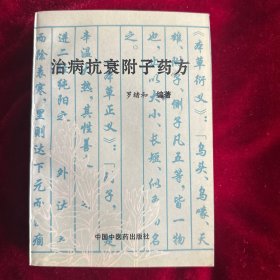 治病抗衰附子药方
罗绪和 编著
《本草衍义》：「乌头、乌喙、天
雄、附子、侧子凡五等，皆一物
也，以大小、长短、似
之。
《本草正义》：「
辛温大热，其性善
进二
纯阳
外达
而除表寒，里则达下元而温
中国中医药出版社